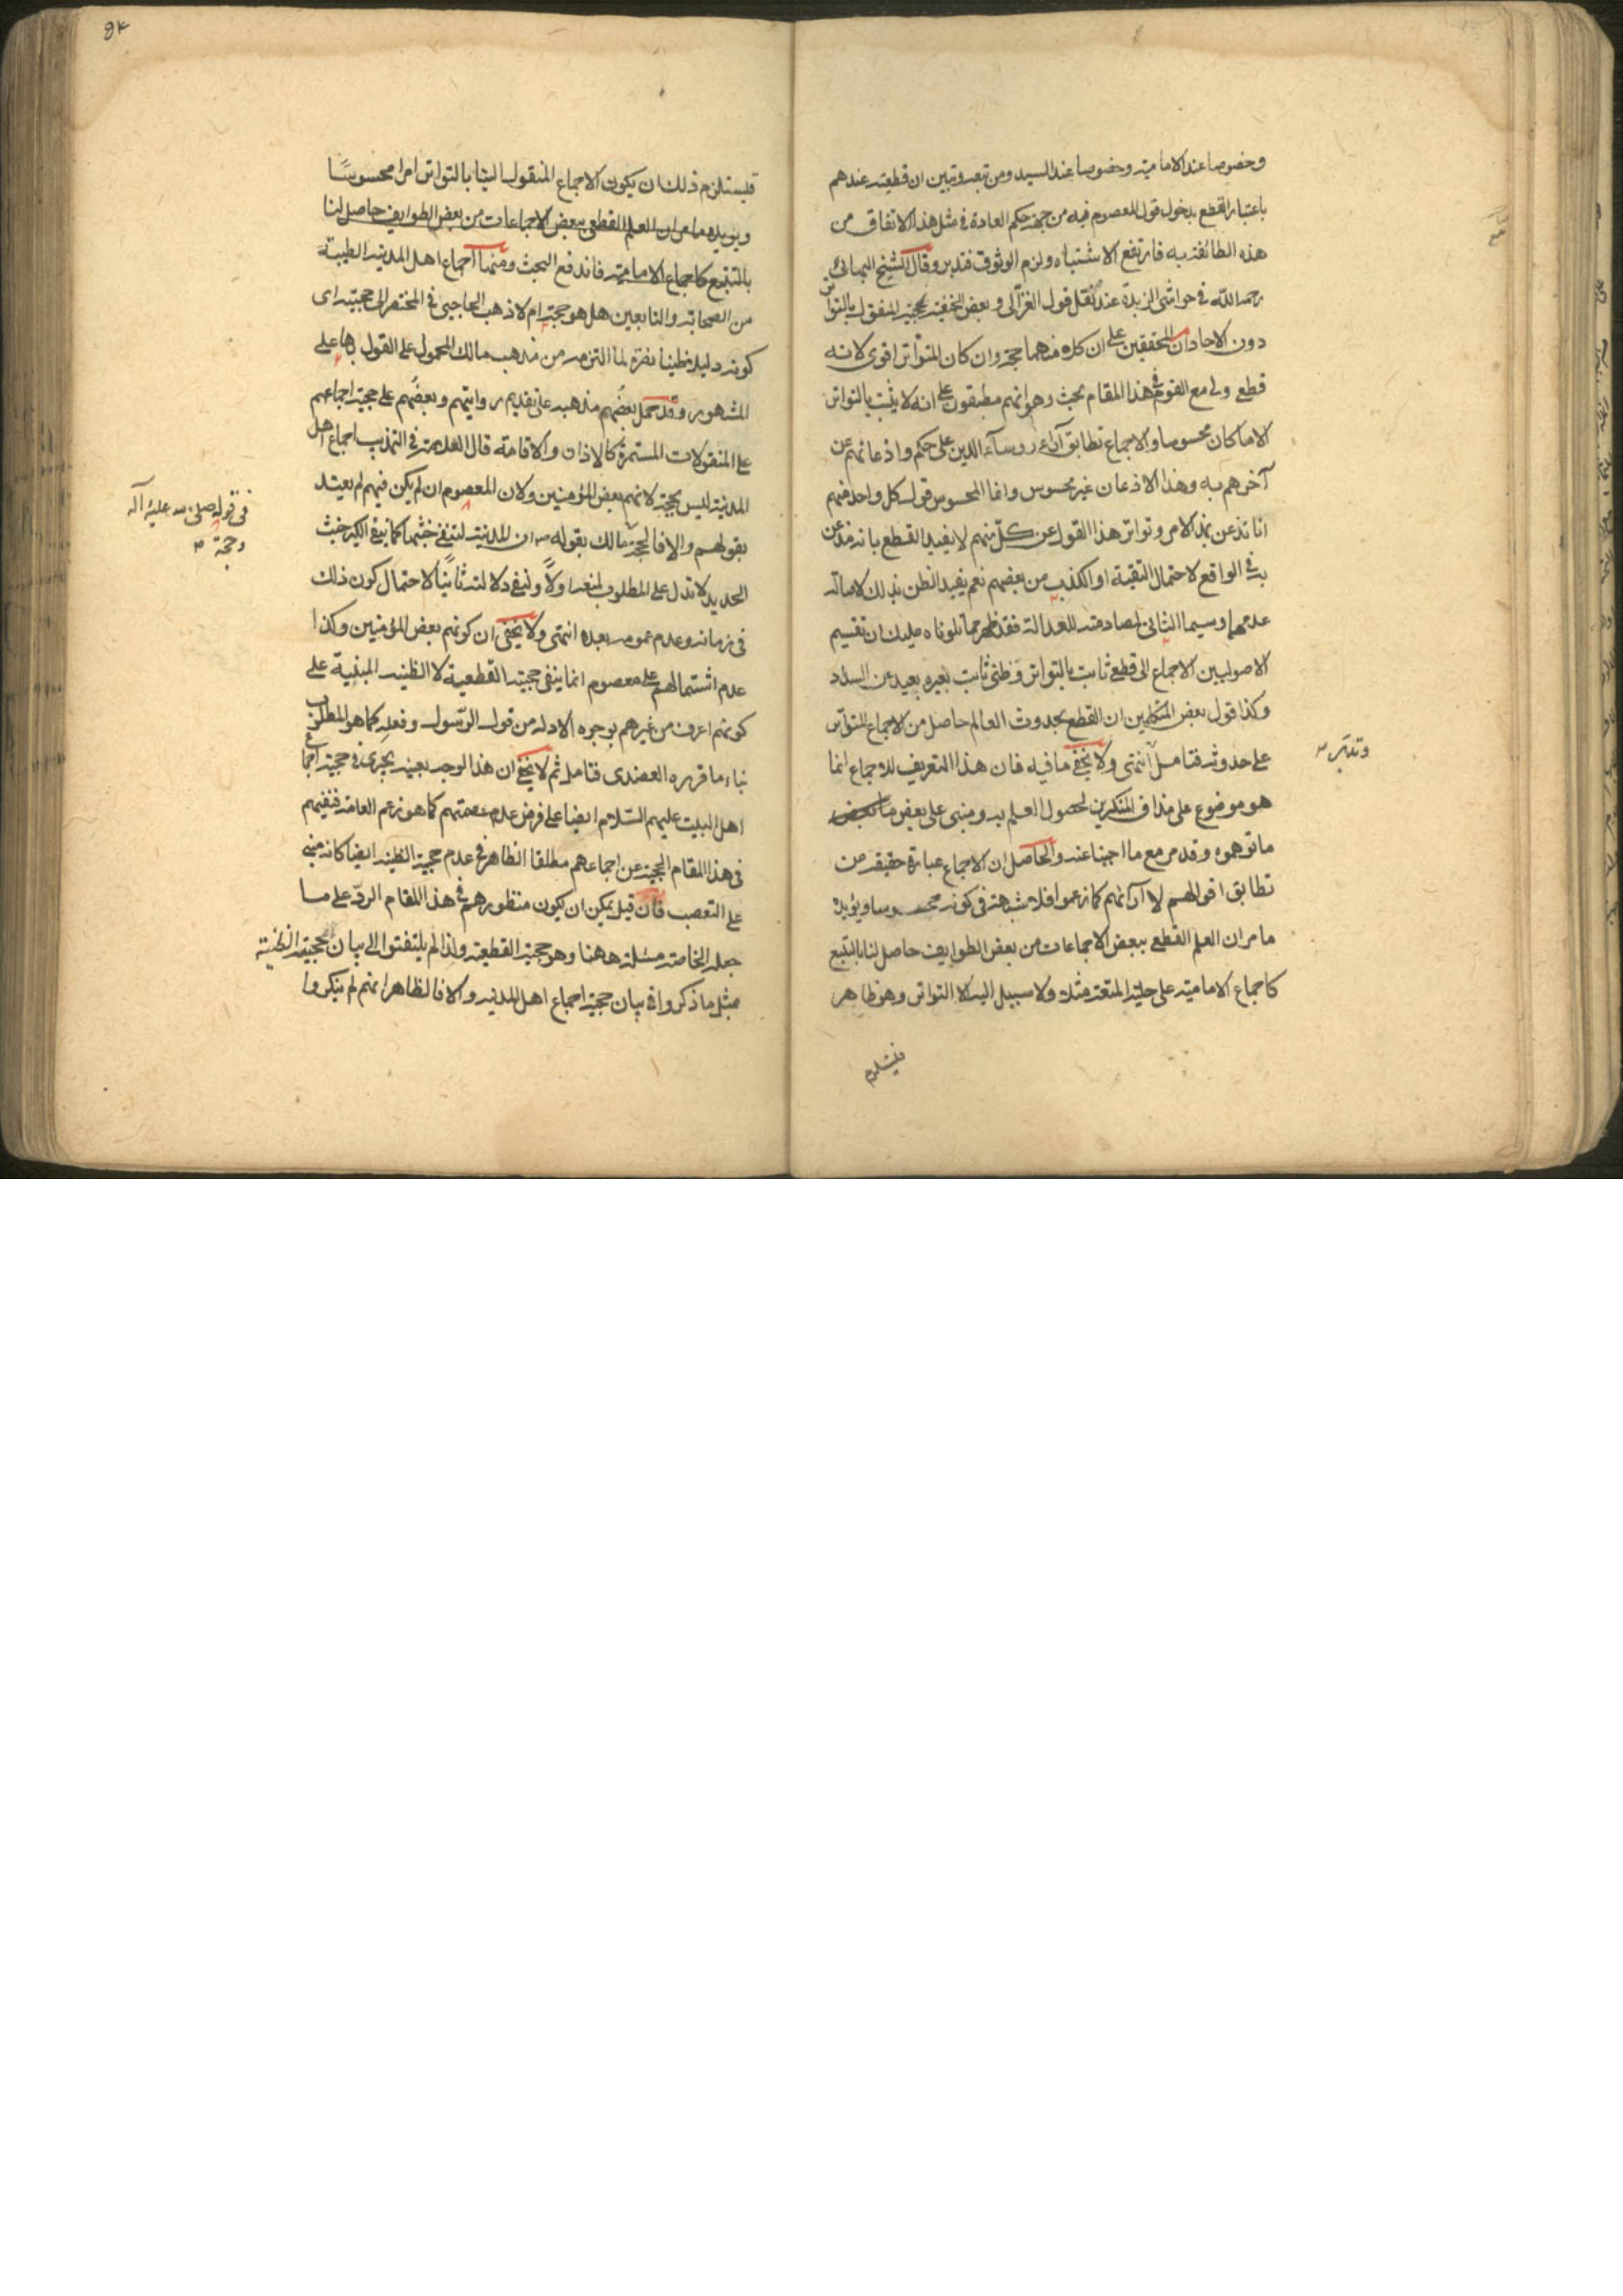 وخصوصا عند الامامية وخصوصا عند السيد ومن تبعه وتبين ان قطعيته عندهم
باعتبار القطع بدخول قول المعصوم فيه من جهة حكم العادة في مثل هذا الاتفاق من
هذه الطائفة به فارتفع الاشتباه ولزم الوثوق فتدبر وقال الشيخ البهائي
رحمه الله في حواشي الزبدة عند نقل قول الغزالي وبعض الحنفية بحجية المنقول بالتواتر
دون الاحاد ان المحققين على ان كلا منهما حجة وان كان المتواتر اقوى لانه
قطعي ولي مع القوم في هذا المقام بحث وهو انهم مطبقون على انه لا يثبت بالتواتر
الا ما كان محسوسا والاجماع تطابق آراء رؤساء الدين على حكم واذعانهم عن
آخرهم به وهذا الاذعان غير محسوس وانما المحسوس قول كل واحد منهم
انا نذعن بهذا الامر وتواتر هذا القول عن كل منهم لا يفيد القطع بانه مذعن
به في الواقع لاحتمال التقية او الكذب من بعضهم نعم يفيد الظن بذلك لاصالة
عدمهما وسيما الثاني لمصادمته للعدالة فقد ظهر مما تلوناه عليك ان تقسيم
الاصوليين الاجماع الى قطعي ثابت بالتواتر وظني ثابت بغيره بعيد عن السداد
وكذا قول بعض المتكلمين ان القطع بحدوث العالم حاصل من الاجماع المتواتر
على حدوثه فتامل انتهى ولا يخفى ما فيه فان هذا التعريف للاجماع انما
وتدبر
هو موضوع على مذاق المنكرين لحصول العلم به ومبني على بعض ما
ما توهموه وقد مر مع ما اجبنا عنه والحاصل ان الاجماع عبارة حقيقة من
تطابق اقوالهم لا آرائهم كما زعموا فلا شبهة في كونه محسوسا ويؤيده
ما مر ان العلم القطعي ببعض الاجماعات من بعض الطوايف حاصل لنا بالتتبع
كاجماع الامامية على حلية المتعة مثلا ولا سبيل اليه الا التواتر وهو ظاهر
فيستلزم
فيستلزم ذلك ان يكون الاجماع المنقول الينا بالتواتر امرا محسوسا
ويؤيده ما مر ان العلم القطعي ببعض الاجماعات من بعض الطوايف حاصل لنا
بالتتبع كاجماع الامامية فاندفع البحث ومنها اجماع اهل المدينة الطيبة
من الصحابة والتابعين هل هو حجة ام لا ذهب الحاجبي في المختصر الى حجيته اى
كونه دليلا ظنيا نصرة لما التزمه من مذهب مالك المحمول على القول بها على
المشهور وقد حمل بعضهم مذهبه على تقديم روايتهم وبعضهم على حجية اجماعهم
على المنقولات المستمرة كالاذان والاقامة قال العلامة في التهذيب اجماع اهل
المدينة ليس بحجة لانهم بعض المؤمنين ولان المعصوم ان لم يكن فيهم لم يعتد
بقولهم والا فالحجة مالك بقوله ان المدينة لتنفي خبثها كما ينفي الكير خبث
في قوله صلى الله عليه وآله
وحجة
الحديد لا تدل على المطلوب لمنعه اولا ولنفي دلالته ثانيا لاحتمال كون ذلك
في زمانه وعدم عمومه بعده انتهى ولا يخفى ان كونهم بعض المؤمنين وكذا
عدم اشتمالهم على معصوم انما ينفى حجيته القطعية لا الظنية المبنية على
كونهم اعرف من غيرهم بوجوه الادلة من قول الرسول وفعله كما هو المطلوب
بناء ما قرره العضدى فتامل ثم لا يخفى ان هذا الوجه بعينه يجرى في حجية اجماع
اهل البيت عليهم السلام ايضا على فرض عدم عصمتهم كما هو زعم العامة فنفيهم
في هذا المقام الحجية عن اجماعهم مطلقا الظاهر في عدم حجية الظنية ايضا كانه مبني
على التعصب فان قيل يمكن ان يكون منظورهم في هذا المقام الرد على ما
جعله الخاصة مسئلة ههنا وهو حجية القطعية ولذا لم يلتفتوا الى بيان حجيته الظنية
بمثل ما ذكروا في بيان حجية اجماع اهل المدينة والا فالظاهر انهم لم ينكروا